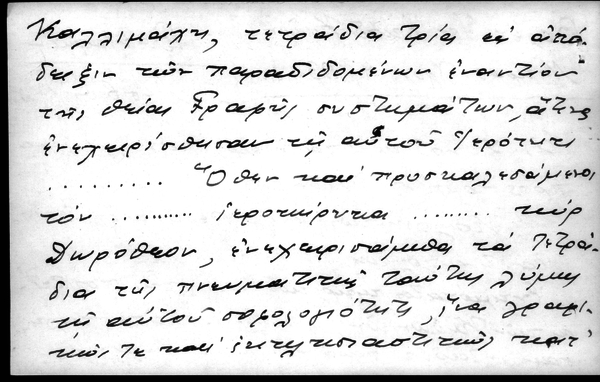 Καλλιμάχη, τετράδια τρία εἰς ἀπό-
δειξιν τῶν παραδιδομένων ἐναντίον
τῆς θείας Γραφῆς συστημάτων, ἅτινα
ἐνεχειρίσθησαν τῇ αὐτοῦ Ἱερότητι
.......... Ὅθεν καί προσκαλεσάμενοι
τόν .......... ἱεροκήρυκα ......... κύρ
Δωρόθεον, ἐνεχειρισάμεθα τά τετρά-
δια τῆς πνευματικῆς ταύτης λύμης
τῇ αὐτοῦ σοφολογιότητι, ἵνα γραφι-
κῶς τε καί ἐκκλησιαστικῶς κατ'